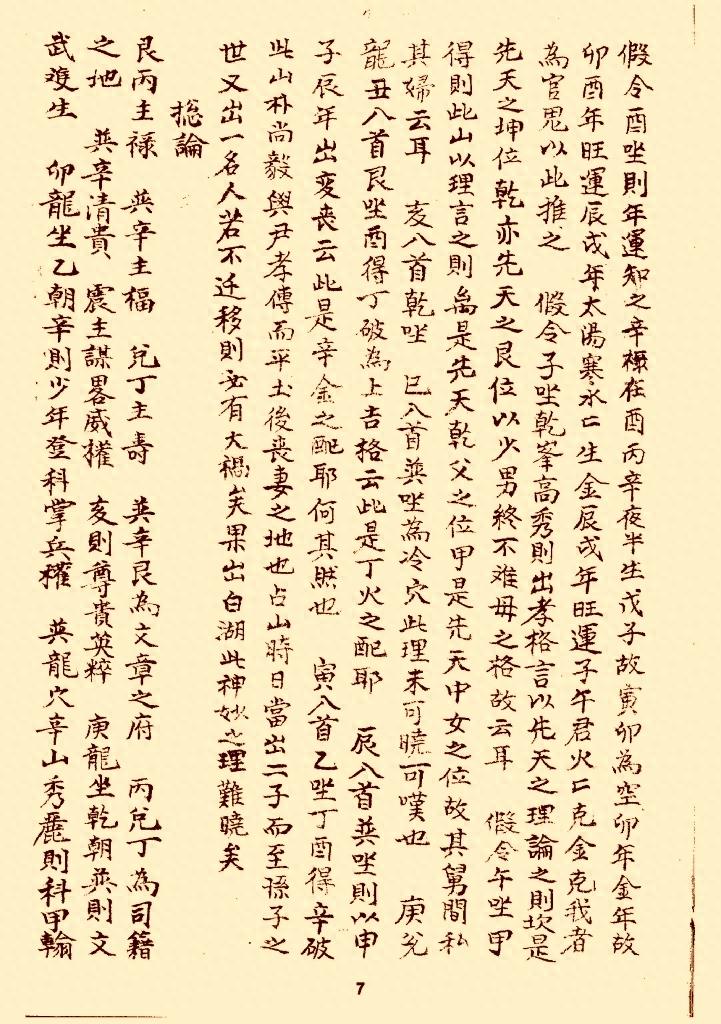 假令酉坐則年運知之辛樑在酉丙辛夜半生戊子故寅卯為空卯年金年故
卯酉年旺運辰戌年太陽寒水二生金辰戌年旺運子午君火二克金克我者
為官鬼以此推之 假令子坐乾峯高秀則出孝格言以先天之理論之則坎是
先天之坤位乾亦先天之艮位以少男終不难母之格故云耳 假令午坐甲
得則此山以理言之則禼是先天乾父之位甲是先天中女之位故其舅間私
其婦云耳 亥八首乾坐 巳八首巽坐為冷穴此理未可曉可嘆也 庚兌
龍丑八首艮坐酉得丁破為上吉格云此是丁火之配耶 辰八首巽坐則以申
子辰年出変丧云此是辛金之配耶何其然也 寅八首乙坐丁酉得辛破
此山朴尚毅與尹孝傳而平土後丧妻之地也占山時日當出二子而至孫子之
世又出一名人若不迁移則必有大禍矣果出白湖此神妙之理難曉矣
捴論
艮丙主祿 巽辛主福 兌丁主壽 巽辛艮為文章之府 丙兌丁為司籍
之地 巽辛清貴 震主謀畧威權 亥則尊貴英粹 庚龍坐乾朝巽則文
武雙生 卯龍坐乙朝辛則少年登科掌兵權 巽龍穴辛山秀麗則科甲翰
7